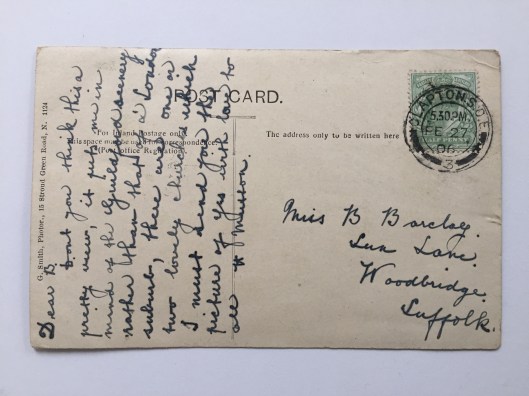 POST CARD.
For Inland Postage only
this space may be used for correspondence
(Post Office Regulation).
The address only to be written here
G. Smith, Photor., 15 Stroud Green Road, N. 1124
CLAPTON S.O.
5.30PM
FE 27
06
3
Dear B.
Dont you think this a
pretty view, it puts me in
mind of the Guildford scenery
rather than that of a London
suburb, there are one or
two lovely which
I must send you the
picture of yrs with love to
all
Miss B Barclay.
Sun Lane.
Woodbridge.
Suffolk.